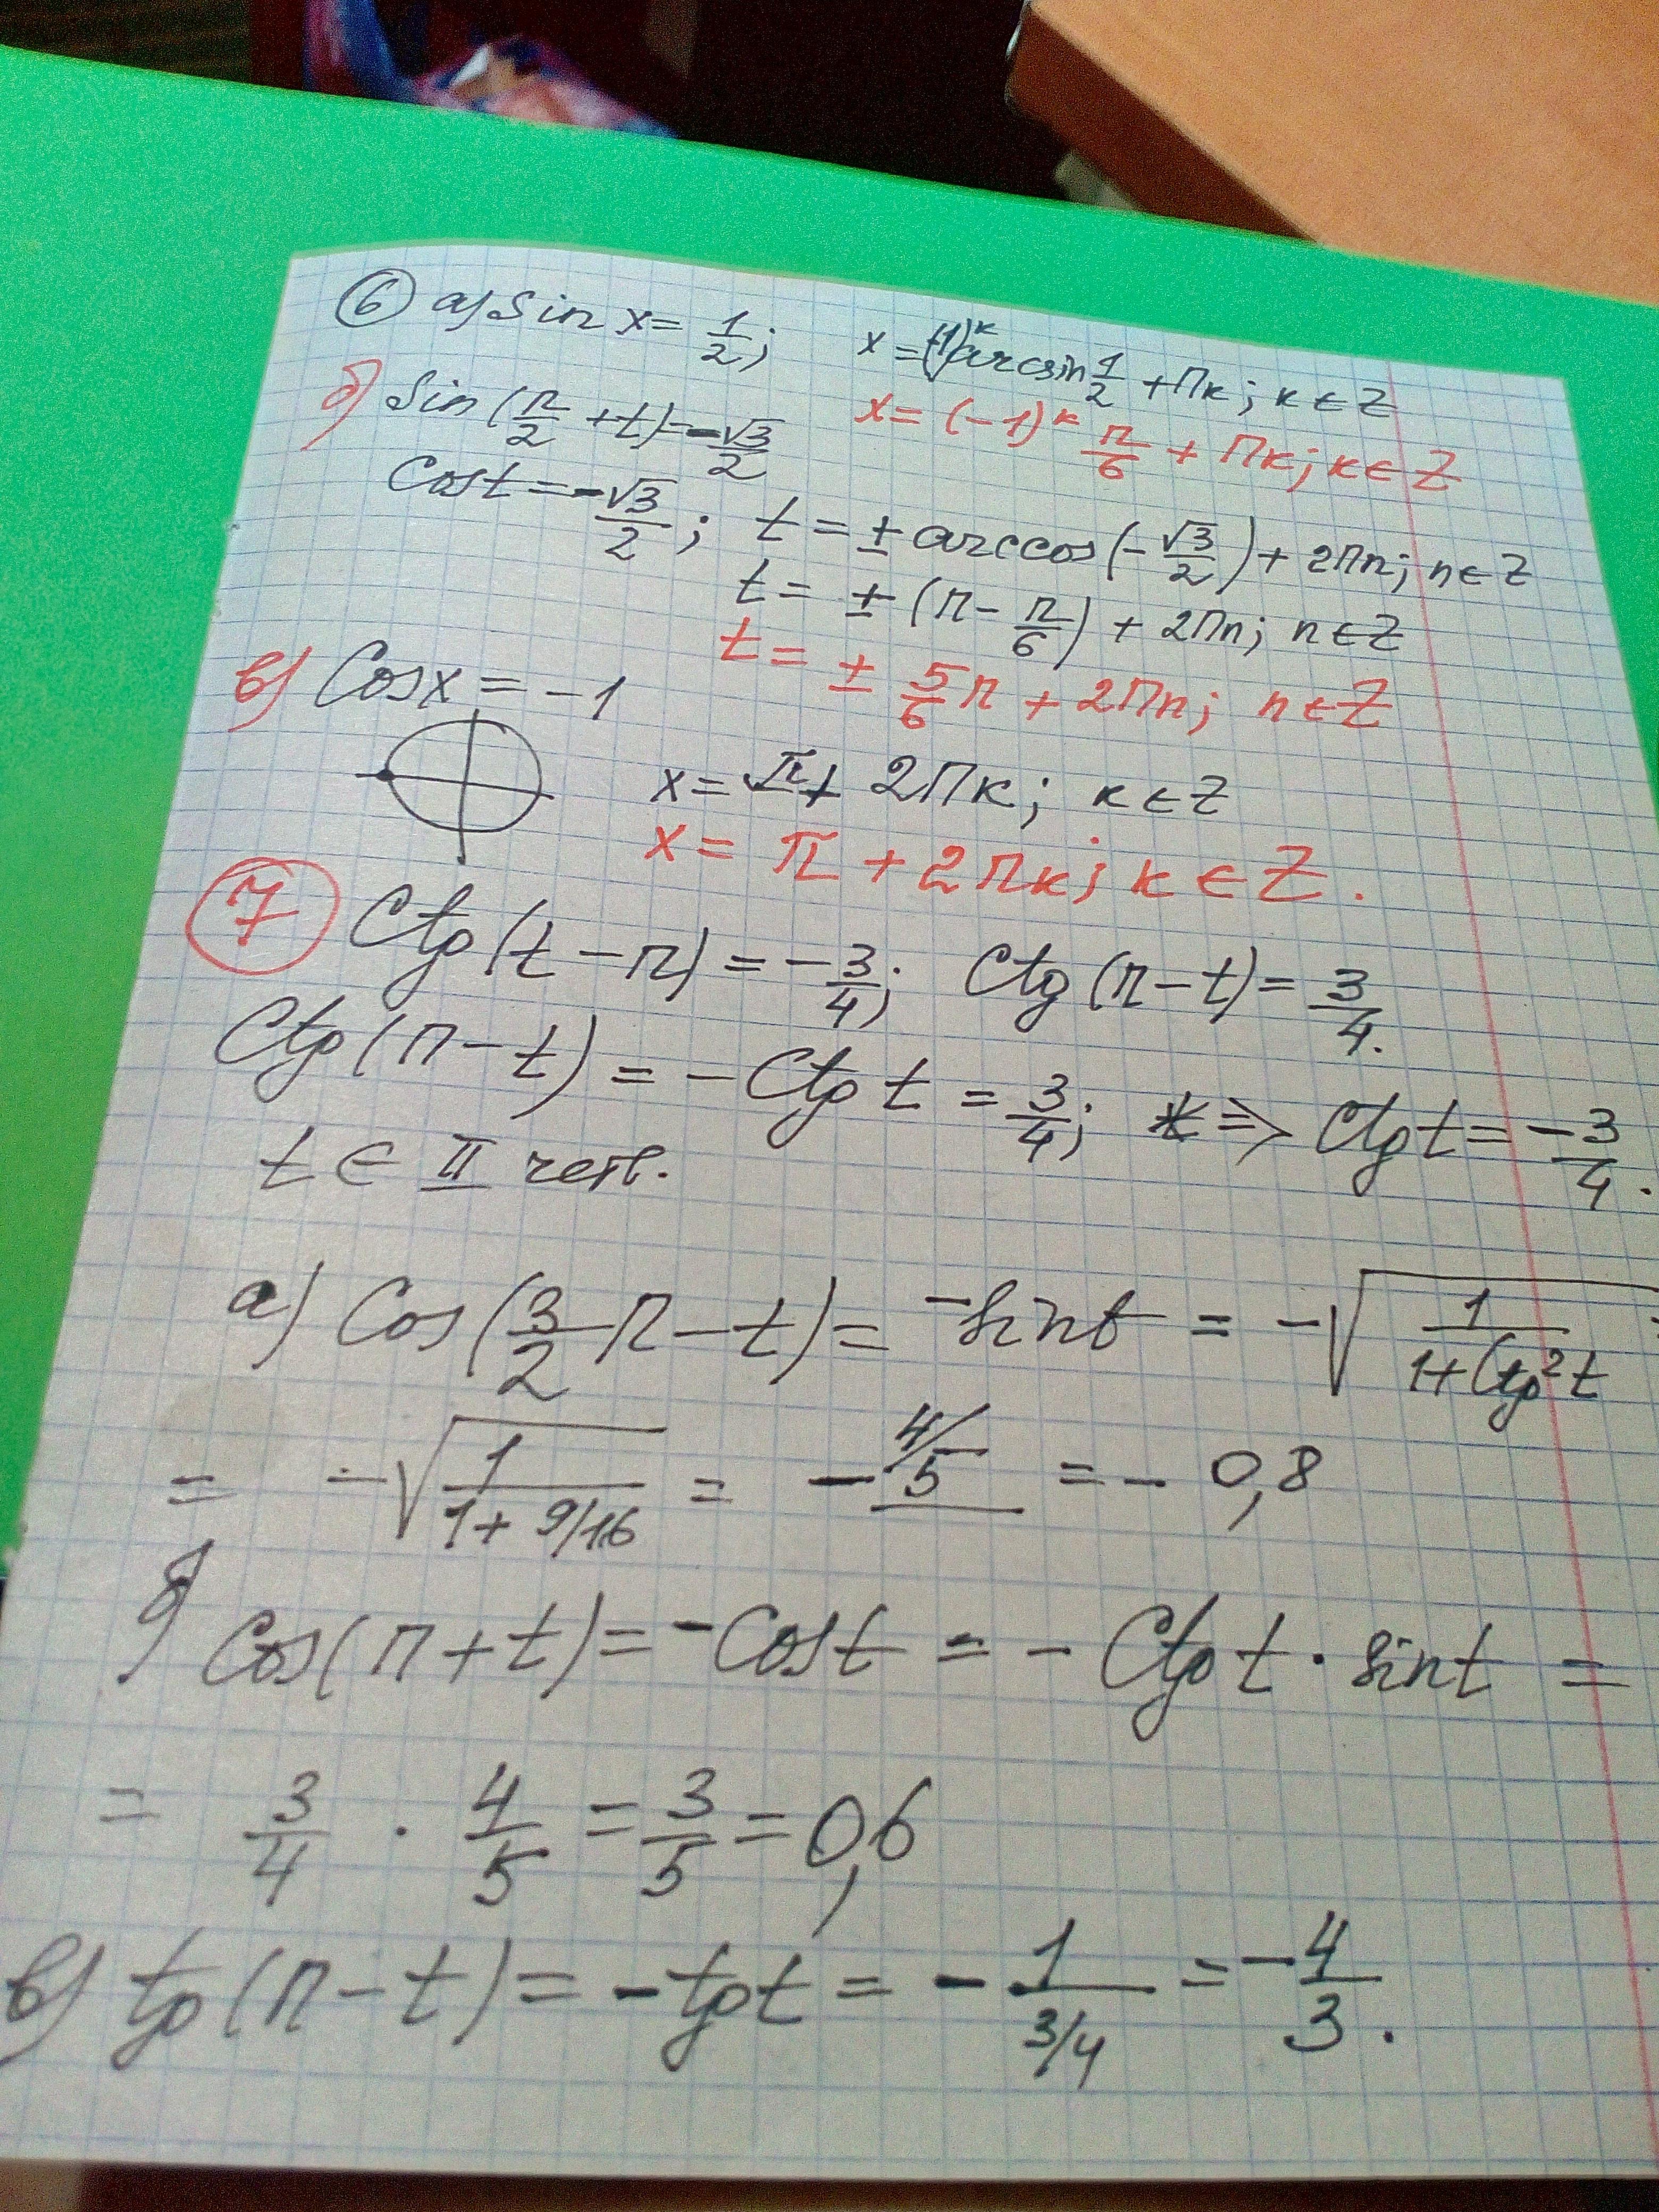 6 а) Sin x = 1/2; x = (-1)^к arcsin 1/2 + Пк; к ∈ Z
x = (-1)^к π/6 + Пк; к ∈ Z
б) Sin (π/2 + t) = -√3/2
Cos t = -√3/2; t = ± arccos (-√3/2) + 2Пn; n ∈ Z
t = ± (π - π/6) + 2Пn; n ∈ Z
t = ± 5/6 π + 2Пn; n ∈ Z
в) Cos x = -1
x = π + 2Пк; к ∈ Z
x = π + 2Пк; к ∈ Z.
7 Ctg (t - π) = -3/4; Ctg (π - t) = 3/4.
Ctg (π - t) = -Ctg t = 3/4; => Ctg t = -3/4.
t ∈ II четв.
а) Cos (3/2 π - t) = -sin t = -√(1/(1 + Ctg² t)) =
= -√(1/(1 + 9/16)) = -4/5 = -0,8
б) Cos (π + t) = -Cos t = -Ctg t · sin t =
= 3/4 · 4/5 = 3/5 = 0,6
в) tg (π - t) = -tg t = -1/(3/4) = -4/3.